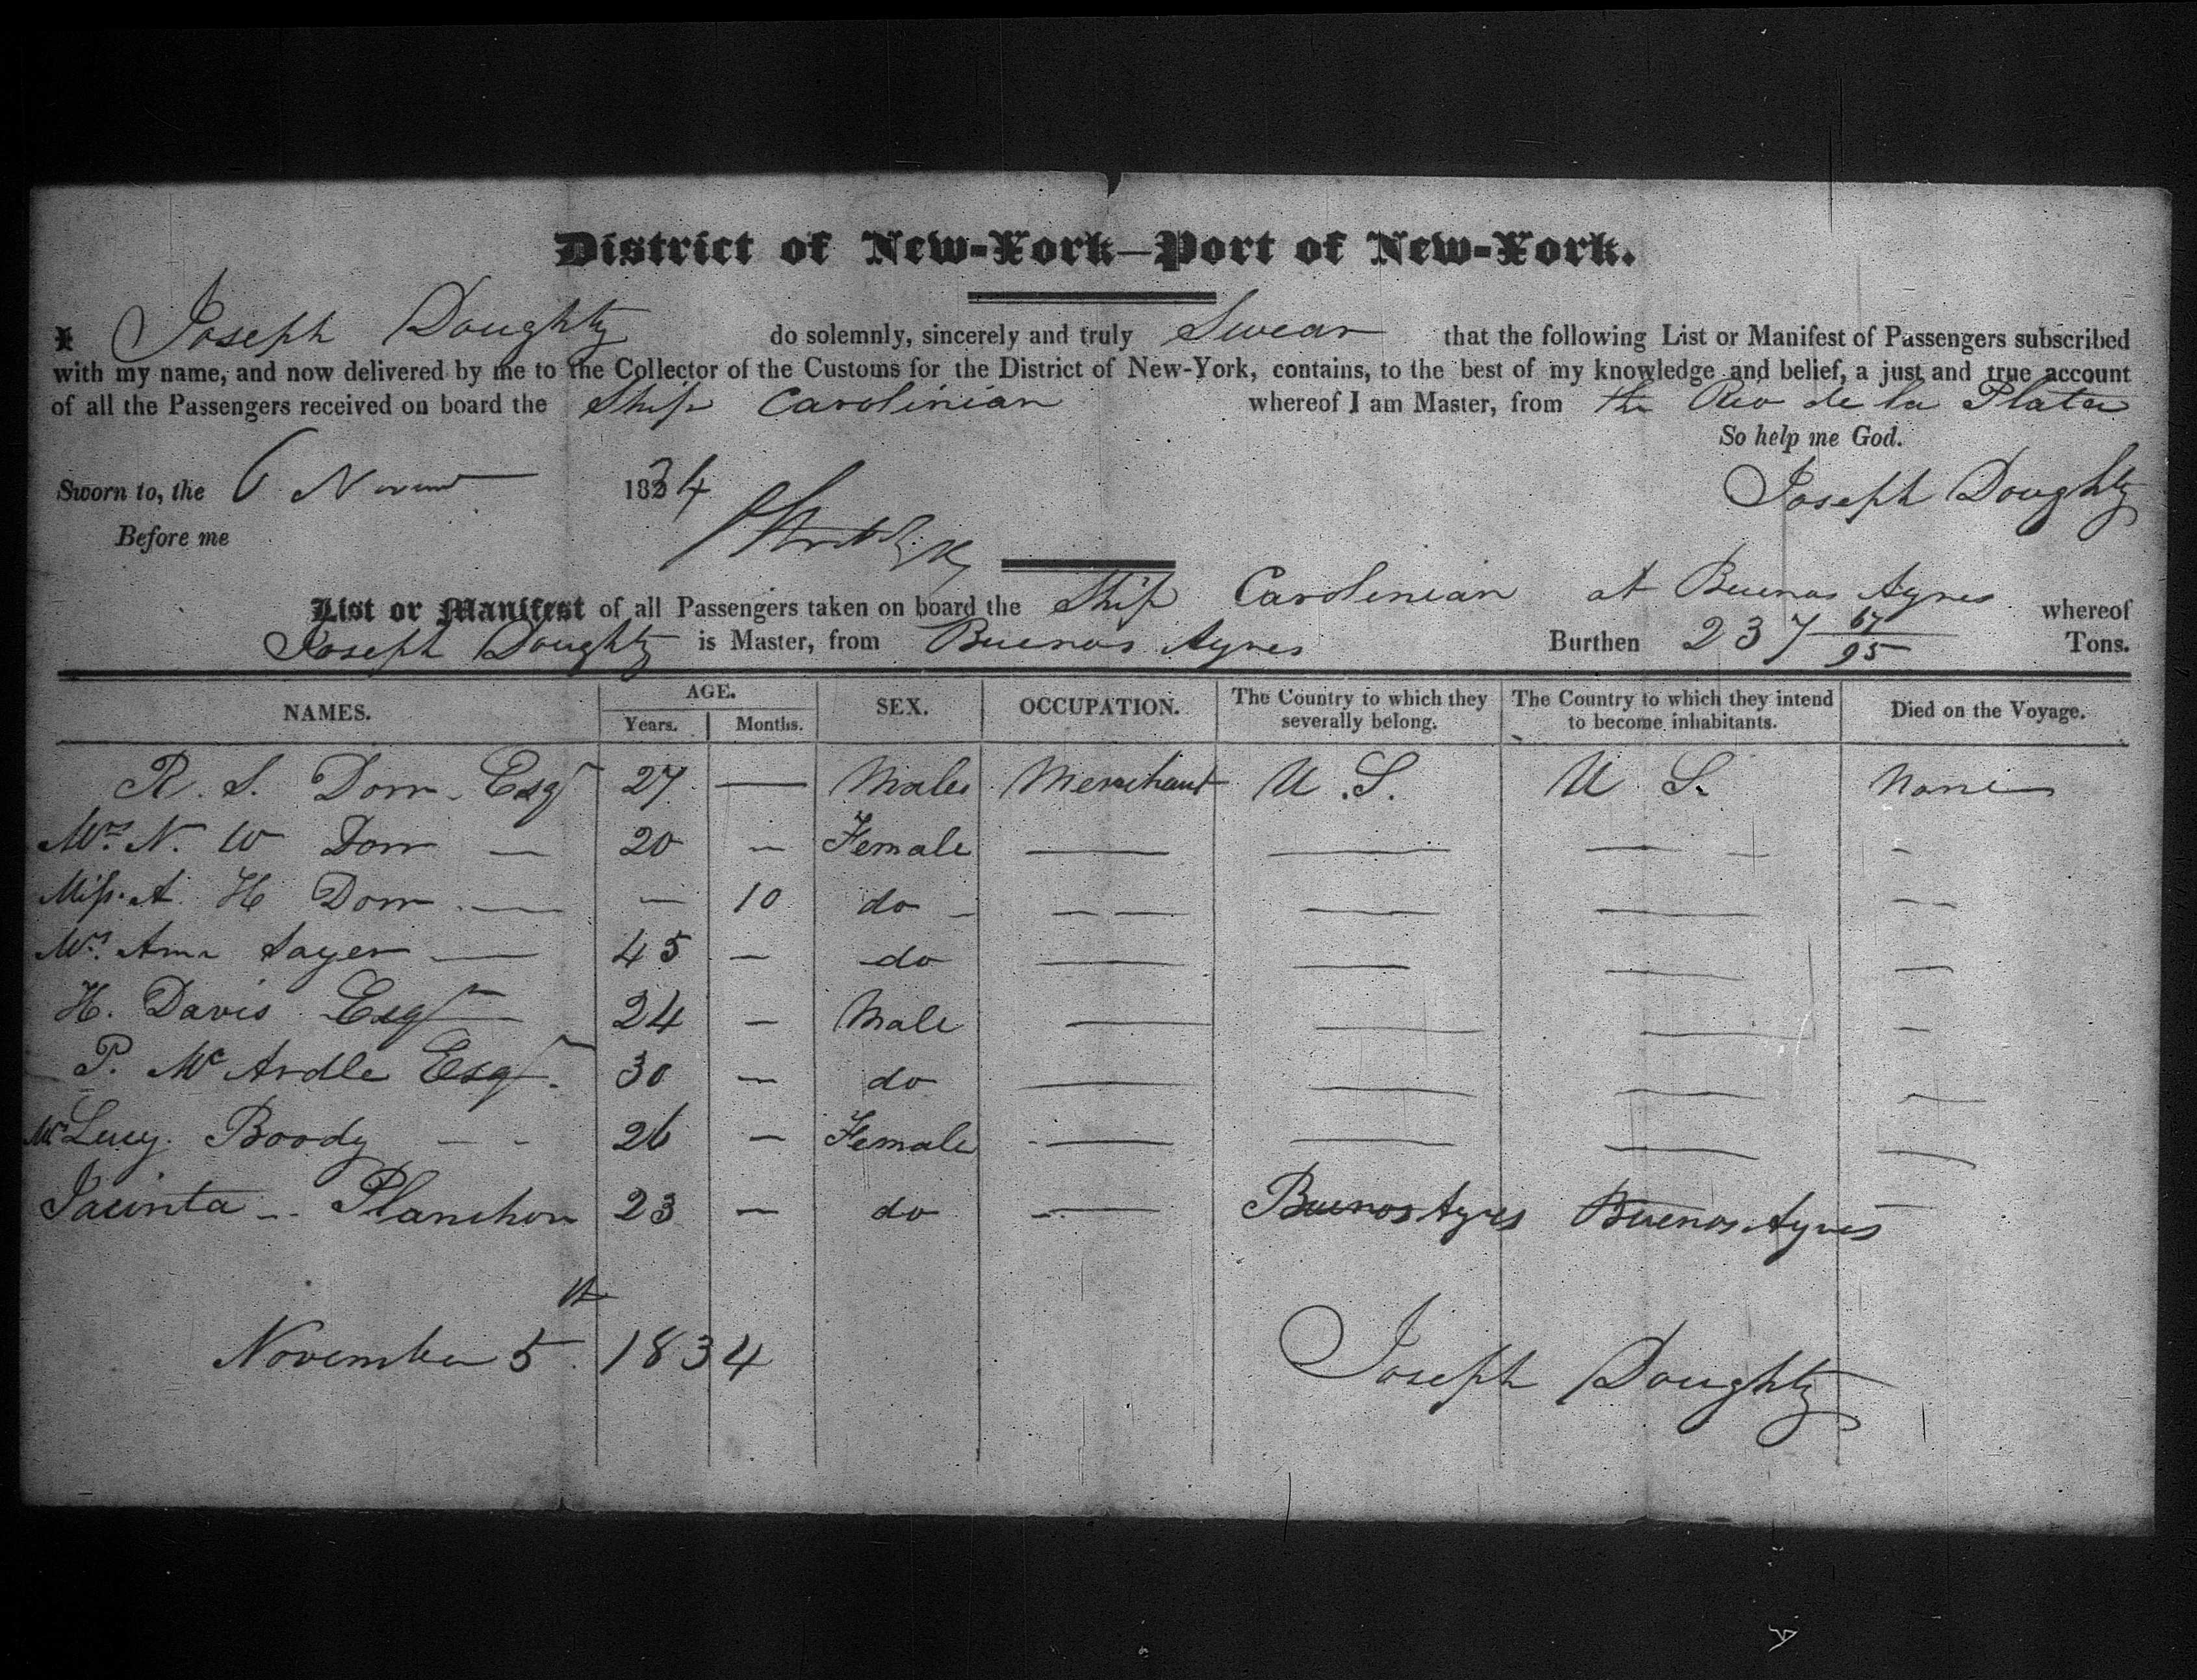 District of New-York—Port of New-York.
I Joseph Doughty do solemnly, sincerely and truly Swear that the following List or Manifest of Passengers subscribed
with my name, and now delivered by me to the Collector of the Customs for the District of New-York, contains, to the best of my knowledge and belief, a just and true account
of all the Passengers received on board the Ship Carolinian whereof I am Master, from the Rio de la Plata
So help me God.
Sworn to, the 6 Novem 1834 Joseph Doughty
Before me
List or Manifest of all Passengers taken on board the Ship Carolinian at Buenos Ayres whereof
Joseph Doughty is Master, from Buenos Ayres Burthen 237 67/95 Tons.
NAMES. AGE. Years. Months. SEX. OCCUPATION. The Country to which they severally belong. The Country to which they intend to become inhabitants. Died on the Voyage.
R. S. Dorr Esqr 27 — Males Merchant U.S. U S. None
Mrs N. W Dorr — 20 — Female — — — —
Miss A. H Dorr — — 10 do — — — — —
Mrs Ann Sayer — 45 — do — — — —
H. Davis Esqr 24 — Male — — — —
P. Mc Ardle Esqr 30 — do — — — —
Mrs Lucy Boody — — 26 — Female — — — —
Jacinta — Planchon 23 — do — Buenos Ayres Buenos Ayres —
November 5th 1834 Joseph Doughty